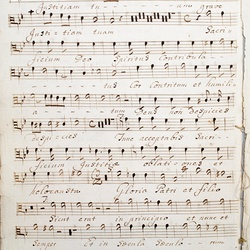 Justitiam tu - am grave
Justitiam tuam Sacri-
ficium Deo Spiritus Contribula-
tus Cor Contritum et humili-
atum Deus Non Despicies
Tunc acceptabis Sacri-
ficium Justitiæ oblationes et
holocausta Gloria Patri et filio
Sicut erat in principio et nunc et
Semper et in Sæcula Sæculorum